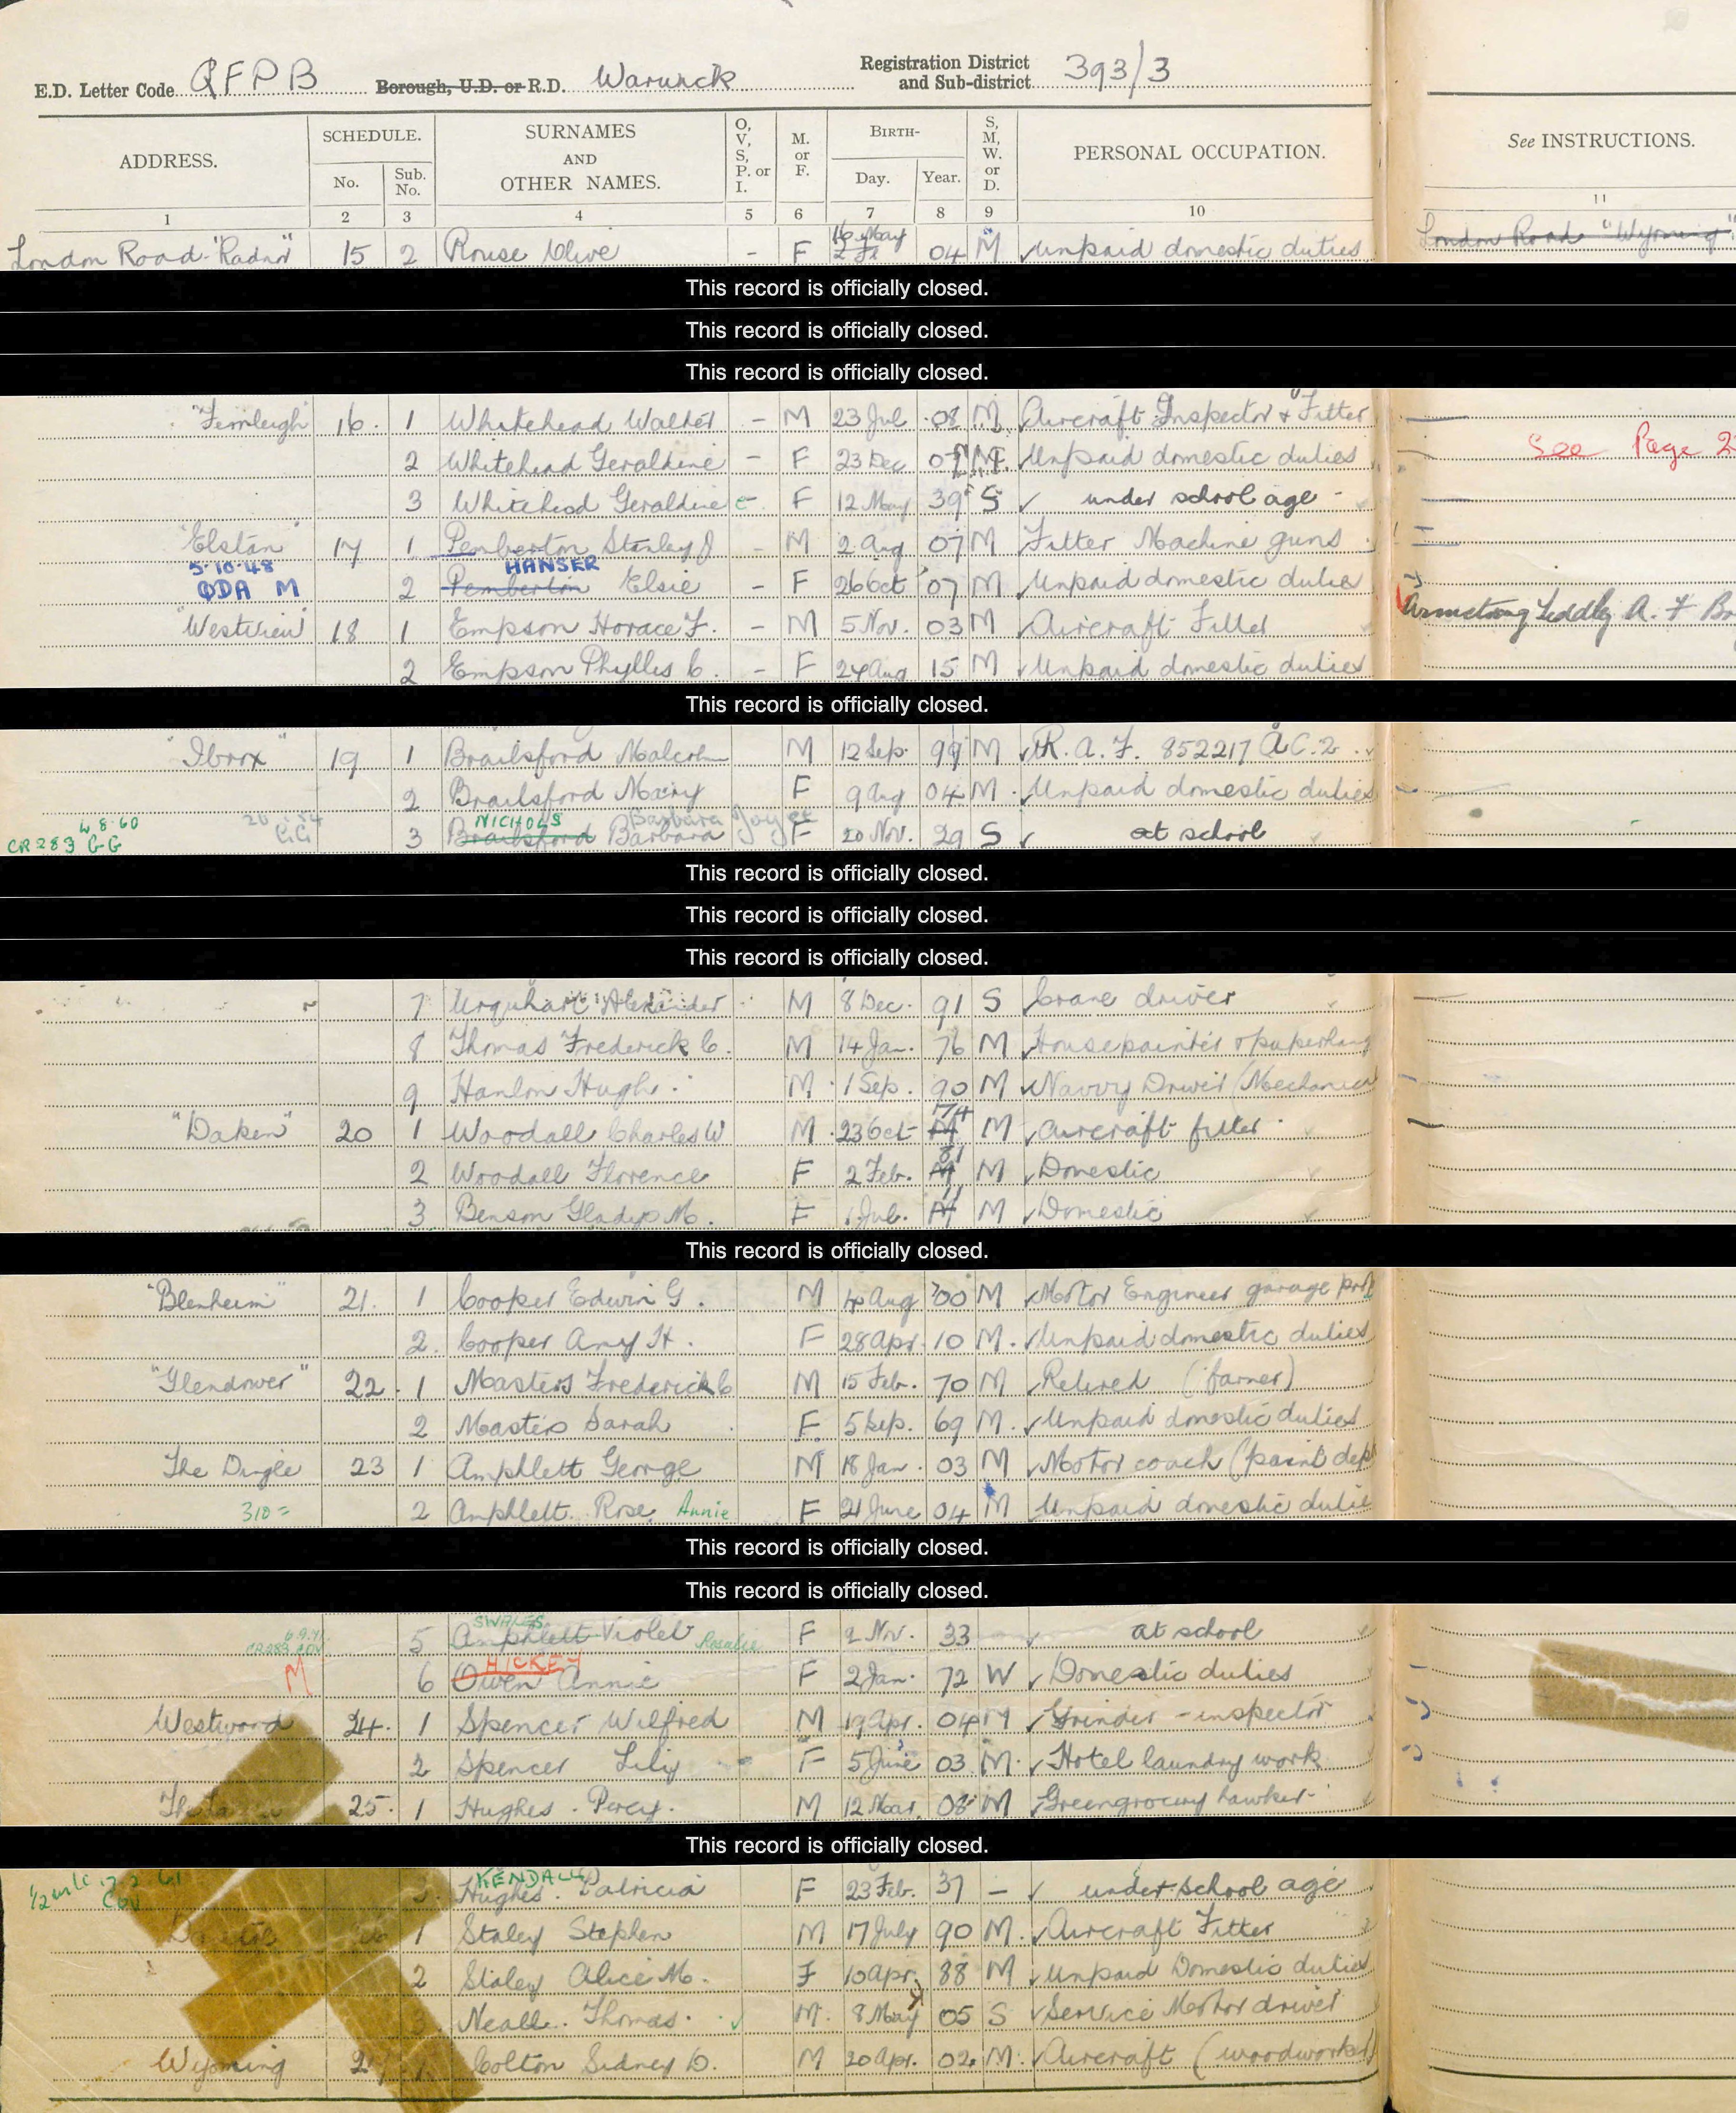 E.D. Letter Code QFPB Borough, U.D. or R.D. Warwick Registration District and Sub-district 393/3
ADDRESS. SCHEDULE. No. Sub. No. SURNAMES AND OTHER NAMES. O, V, S, P. or I. M. or F. BIRTH- Day. Year. S, M, W. or D. PERSONAL OCCUPATION. See INSTRUCTIONS.
1 2 3 4 5 6 7 8 9 10 11
London Road "Radnor" 15 2 Rouse Olive - F 16 May 04 M Unpaid domestic duties London Road "Wyoming"
This record is officially closed.
This record is officially closed.
This record is officially closed.
"Fernleigh" 16 1 Whitehead Walter - M 23 Jul 08 M Aircraft Inspector & Fitter
2 Whitehead Geraldine - F 23 Dec 07 M Unpaid domestic duties See Page 2
3 Whitehead Geraldine c - F 12 May 39 S under school age -
"Elstan" 17 1 Pemberton Stanley J - M 2 Aug 07 M Fitter Machine guns
5.10.48 HANSER
ODA M 2 Pemberton Elsie - F 26 Oct 07 M Unpaid domestic duties
"Westview" 18 1 Empson Horace F. - M 5 Nov. 03 M Aircraft Fitter Armstrong Siddley A. F
2 Empson Phyllis C. - F 24 Aug 15 M Unpaid domestic duties
This record is officially closed.
"Ibrox" 19 1 Brailsford Malcolm M 12 Sep. 99 M R.A.F. 852217 A.C.2.
2 Brailsford Mary F 9 Aug 04 M Unpaid domestic duties
4.8.60 NICHOLS Barbara Joyce
CR283 GG GG 3 Brailsford Barbara F 20 Nov. 29 S at school
This record is officially closed.
This record is officially closed.
This record is officially closed.
7 Urquhart Alexander M 8 Dec. 91 S Crane driver
8 Thomas Frederick C. M 14 Jan. 76 M House painter & paperhang
9 Hanlon Hugh. M 1 Sep. 90 M Navvy Driver (Mechanical
"Daken" 20 1 Woodall Charles W M 23 Oct 74 M Aircraft fitter
2 Woodall Florence F 2 Feb. 81 M Domestic
3 Benson Gladys M. F 1 Jul. 11 M Domestic
This record is officially closed.
"Blenheim" 21. 1 Cooper Edwin G. M Aug 00 M Motor Engineer garage prop
2. Cooper Amy H. F 28 Apr. 10 M. Unpaid domestic duties
"Glendower" 22. 1 Masters Frederick C M 15 Feb. 70 M Retired (farmer)
2 Masters Sarah F. 5 Sep. 69 M. Unpaid domestic duties
The Dingle 23 1 Amphlett George M 18 Jan. 03 M Motor coach (paint dep
310= 2 Amphlett Rose Annie F 21 June 04 M Unpaid domestic duties
This record is officially closed.
This record is officially closed.
SWALES
CR283 COV 5 Amphlett Violet Rosalie F 2 Nov. 33 at school
HICKEY
M 6 Owen Annie F 2 Jan. 72 W Domestic duties
Westwood 24. 1 Spencer Wilfred M 19 Apr. 04 M Grinder - inspector
2 Spencer Lily F 5 June 03 M. Hotel laundry work
25. 1 Hughes. Percy. M 12 Mar. 08 M Greengrocery hawker
This record is officially closed.
KENDALL
COV 3. Hughes. Patricia F 23 Feb. 37 - under school age
1 Staley Stephen M 17 July 90 M. Aircraft Fitter
2 Staley Alice M. F 10 Apr. 88 M Unpaid Domestic duties
3. Neall. Thomas. M. 8 May 05 S Service Motor driver
Wyoming 27 1. Colton Sidney D. M 20 Apr. 02 M. Aircraft (woodworker)